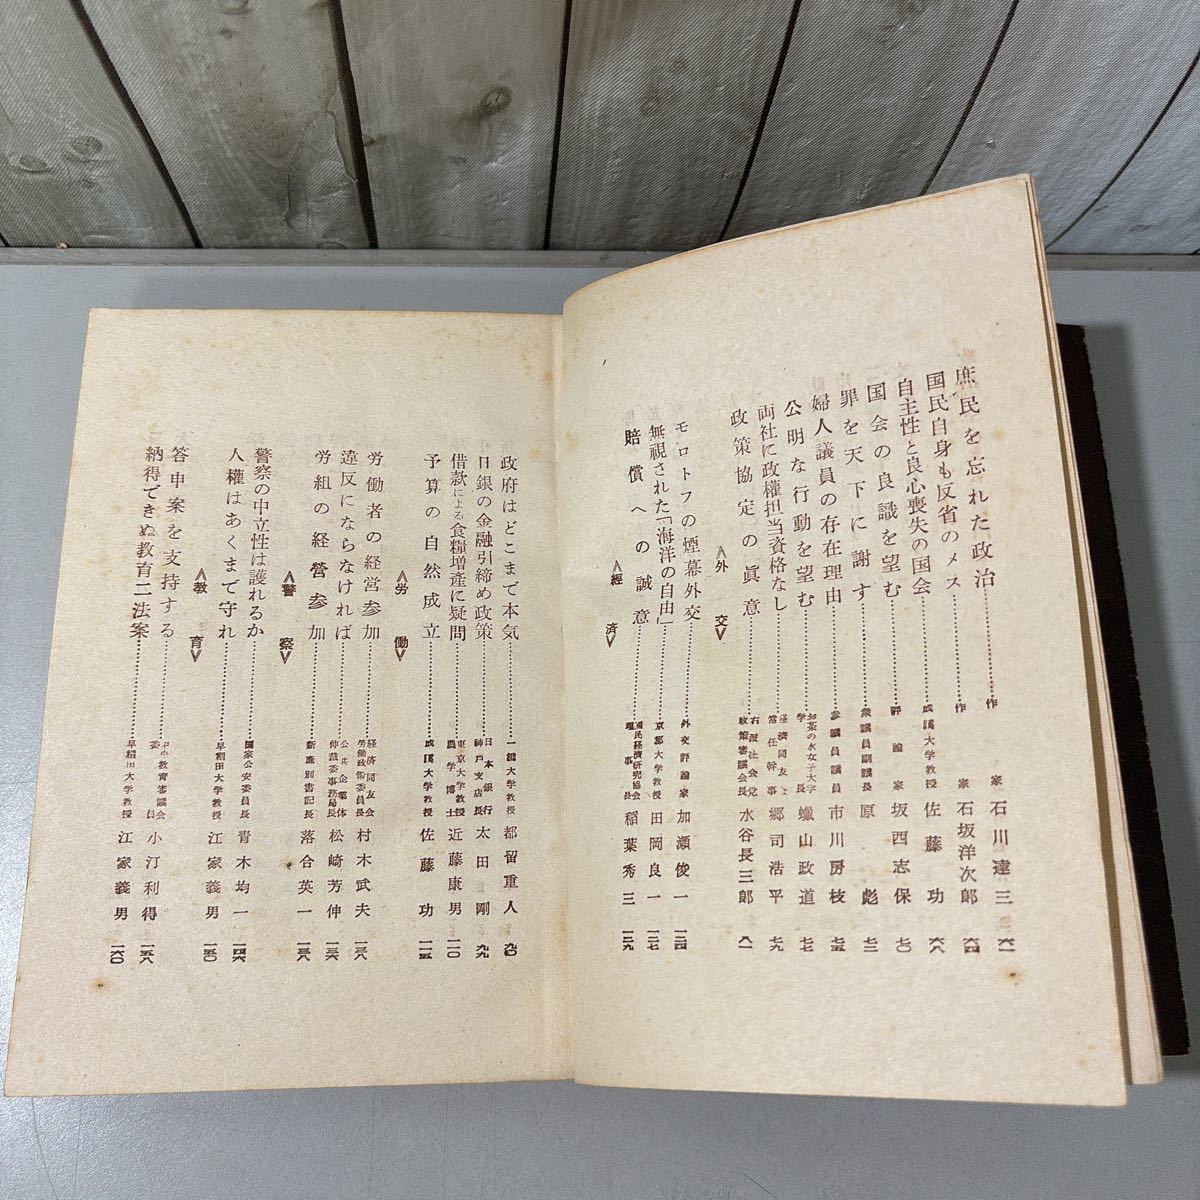 庶民を忘れた政治…作家 石川達三 六一
国民自身も反省のメス…作家 石坂洋次郎 六四
自主性と良心喪失の国会…成蹊大学教授 佐藤功 六八
国会の良識を望む…評論家 坂西志保 七〇
罪を天下に謝す…衆議員副議長 原彪 七三
婦人議員の存在理由…参議員議員 市川房枝 七五
公明な行動を望む…お茶の水女子大学学長 蠟山政道 七七
両社に政権担当資格なし…経済同友会常任幹事 郷司浩平 七九
政策協定の眞意…右派社会党政策審議会長 水谷長三郎 八一
≪外交≫
モロトフの煙幕外交…外交評論家 加瀬俊一
無視された「海洋の自由」…京都大学教授 田岡良一
賠償への誠意…国民経済研究協会理事長 稲葉秀三
≪經済≫
政府はどこまで本気…一橋大学教授 都留重人 九〇
日銀の金融引締め政策…日本銀行神戸支店長 太田剛 九九
借款による食糧増産に疑問…東京大学教授農学博士 近藤康男
予算の自然成立…成蹊大学教授 佐藤功
≪労働≫
労働者の経営参加…経済同友会労働政策委員長 村木武夫
違反にならなければ…公共企業体仲裁委事務局長 松崎芳伸
労組の経営参加…新産別書記長 落合英一
≪警察≫
警察の中立性は護れるか…国家公安委員長 青木均一
人権はあくまで守れ…早稲田大学教授 江家義男 一五〇
≪教育≫
答申案を支持する…中央教育審議会委員 小汀利得 一五八
納得できぬ教育二法案…早稲田大学教授 江家義男 一六〇